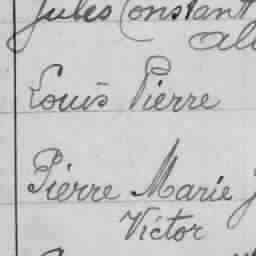 Jules Constant
Louis Pierre
Pierre Marie
Victor